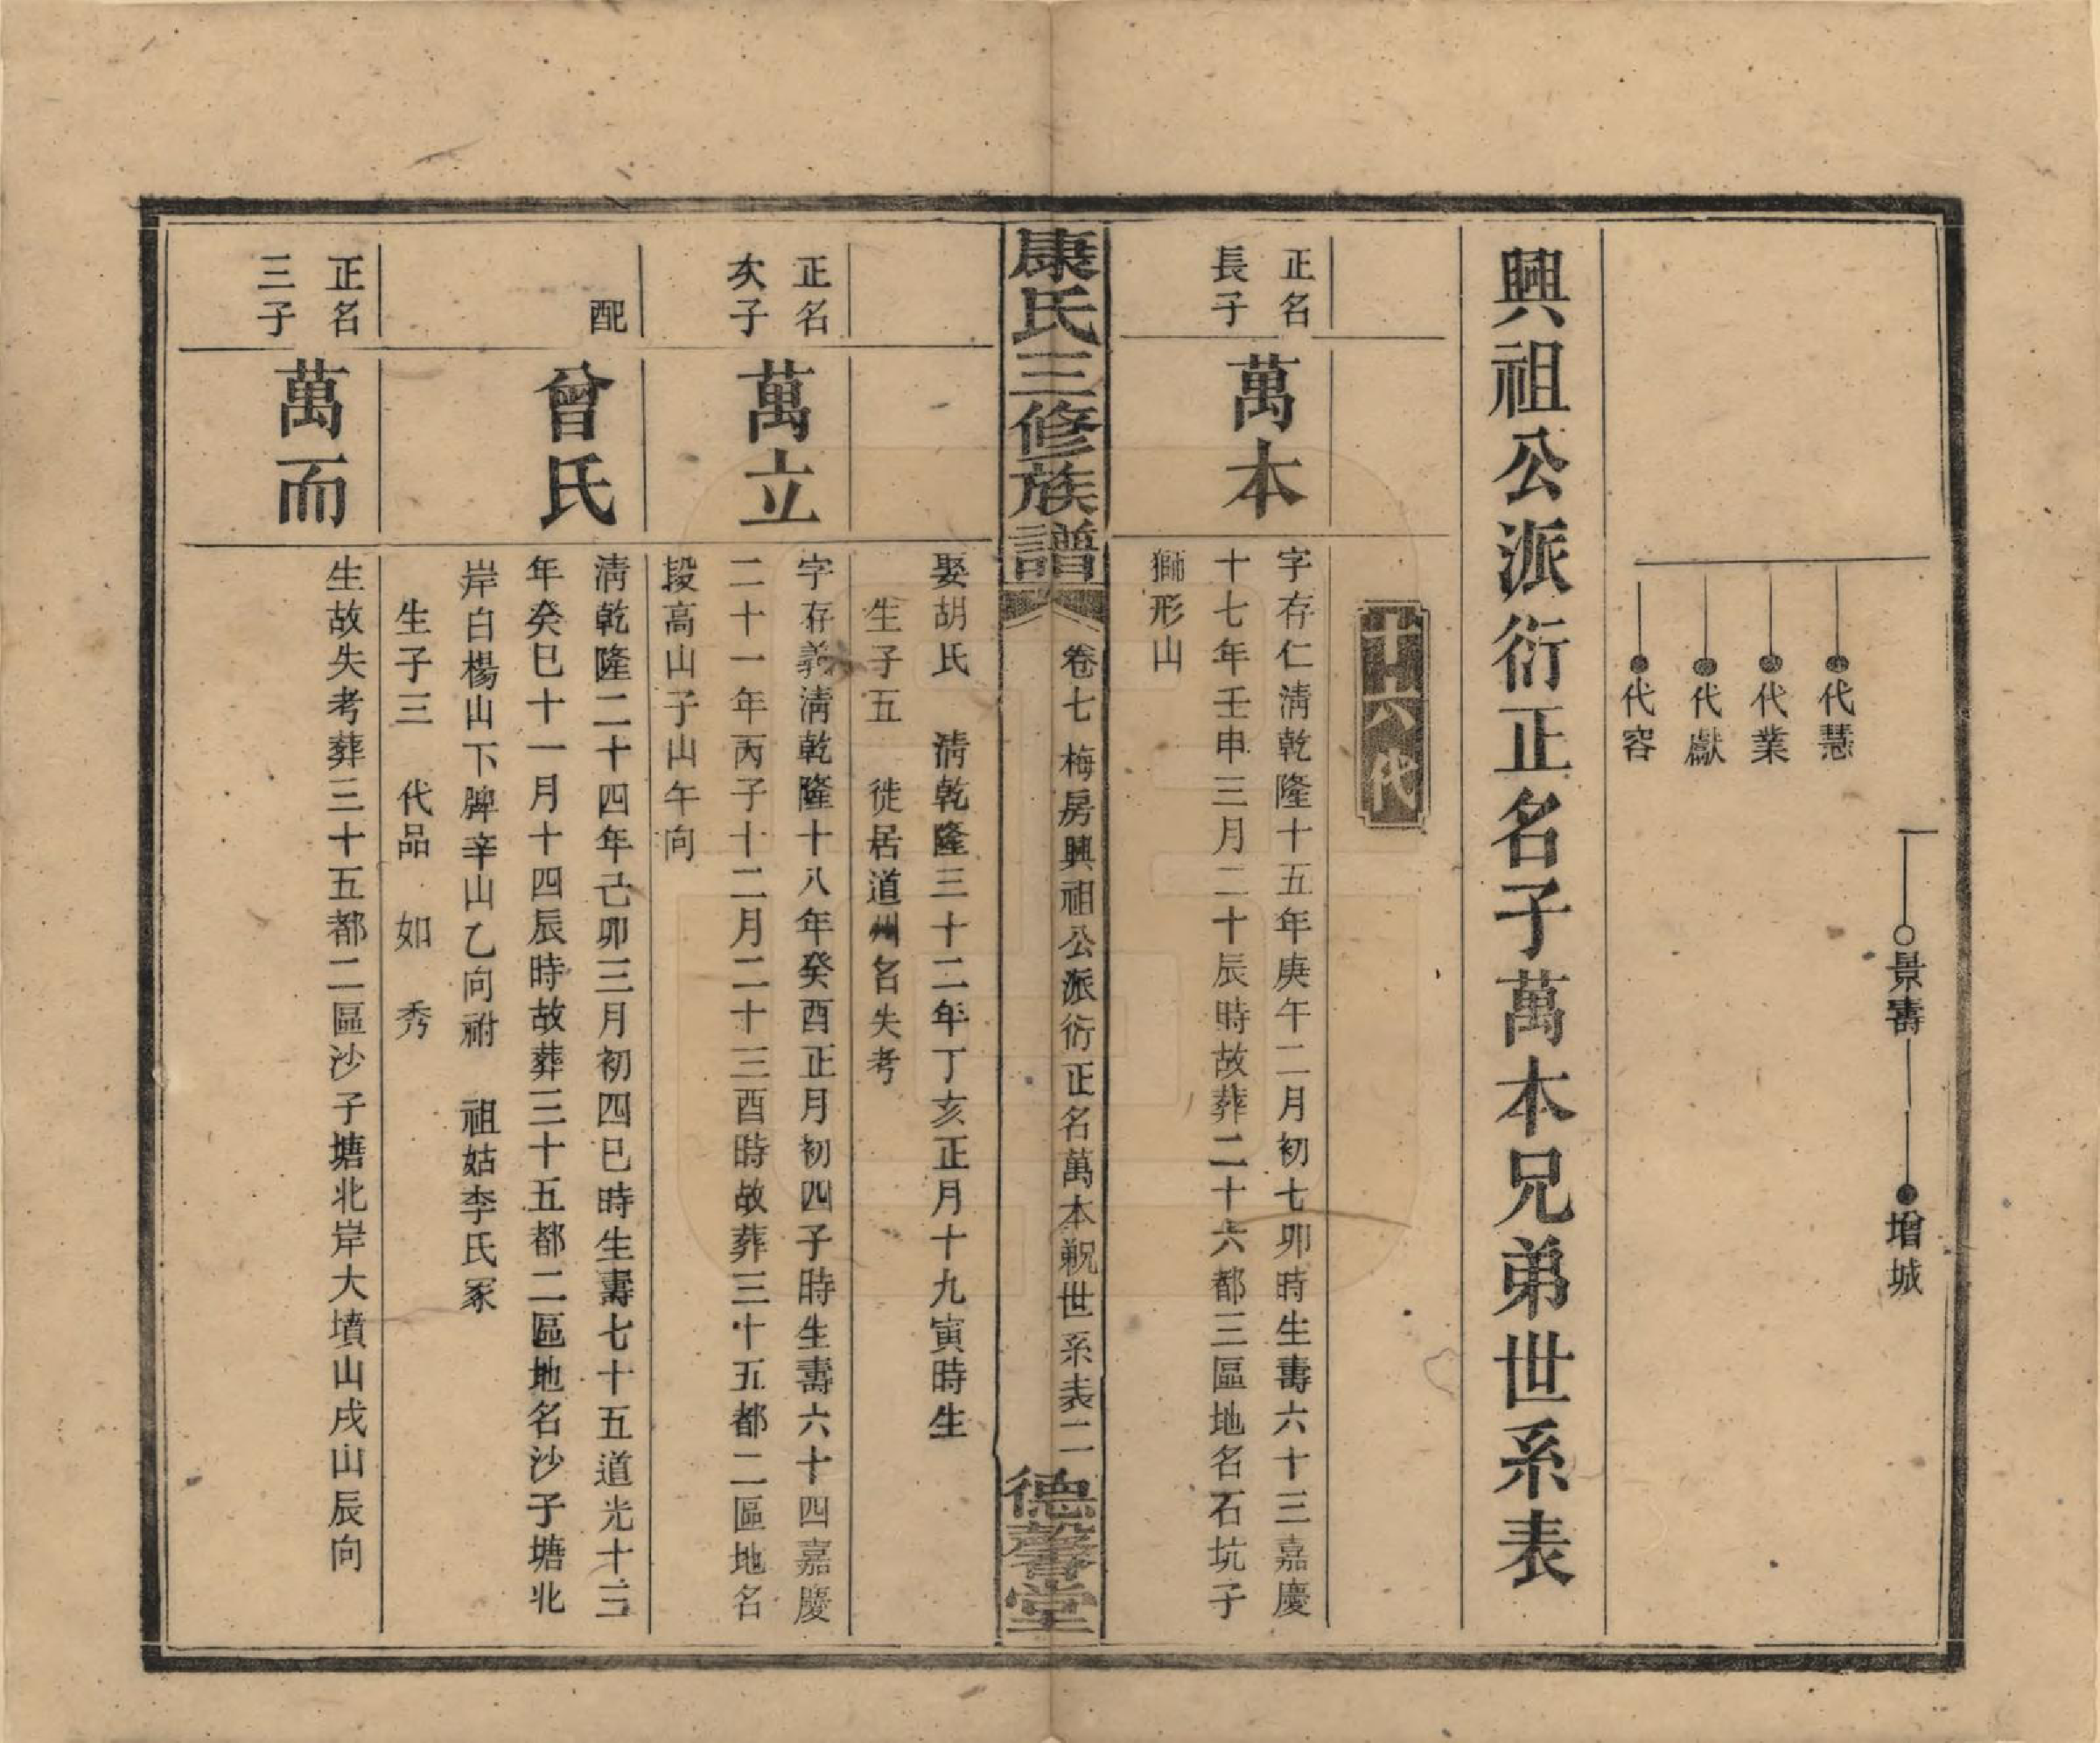 景壽
增城
代慧
代業
代獻
代容
興祖公派衍正名子萬本兄弟世系表
十六代
正名
長子
萬本
字存仁淸乾隆十五年庚午二月初七卯時生壽六十三嘉慶
十七年壬申三月二十辰時故葬二十六都三區地名石坑子
獅形山
康氏三修族譜
卷七
梅房興祖公派衍正名萬本兄弟世系表
二
德馨堂
娶胡氏 淸乾隆三十二年丁亥正月十九寅時生
生子五 徙居道州名失考
正名
次子
萬立
字存義淸乾隆十八年癸酉正月初四子時生壽六十四嘉慶
二十一年丙子十二月二十三酉時故葬三十五都二區地名
段高山子山午向
配
曾氏
淸乾隆二十四年己卯三月初四巳時生壽七十五道光十三
年癸巳十一月十四辰時故葬三十五都二區地名沙子塘北
岸白楊山下脾辛山乙向祔 祖姑李氏冢
生子三 代品 如 秀
正名
三子
萬而
生故失考葬三十五都二區沙子塘北岸大墳山戌山辰向